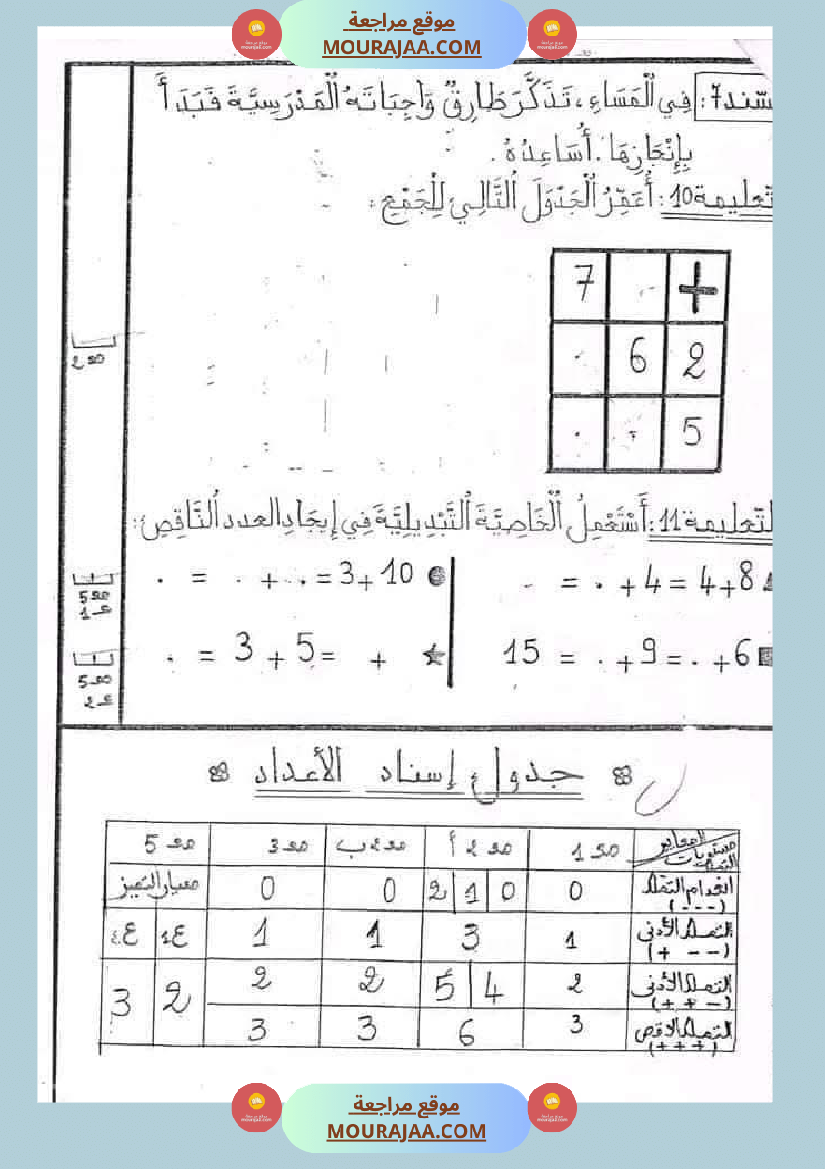 موقع مراجعة
MOURAJAA.COM
سند7: فِي الْمَسَاءِ، تَذَكَّرَ طَارِقٌ وَاجِبَاتَهُ الْمَدْرَسِيَّةَ فَبَدَأَ
بِإِنْجَازِهَا. أُسَاعِدُهُ.
تعليمة10: أُعَمِّرُ الْجَدْوَلَ التَّالِيَ لِلْجَمْعِ:
+ . 7
2 6 .
5 . .
مع 2
لتعليمة11: أَسْتَعْمِلُ الْخَاصِيَّةَ التَّبْدِيلِيَّةَ فِي إِيجَادِ العدد النَّاقِصِ:
8+4 = 4+ . = .
10+3= . + . = .
مع5
6+ . = 9+ . = 15
+ =5+3 = .
مع5
جدول إسناد الأعداد
المعايير
مستويات
مع 1 مع 2 أ مع 2 ب مع 3 مع 5
انعدام التملك (- - -) 0 0 1 2 0 0 معيار التميز
التملك الأدنى (+ - -) 1 3 1 1
التملك الأدنى (+ + -) 2 4 5 2 2 2 3
التملك الاقصى (+ + +) 3 6 3 3
موقع مراجعة
MOURAJAA.COM